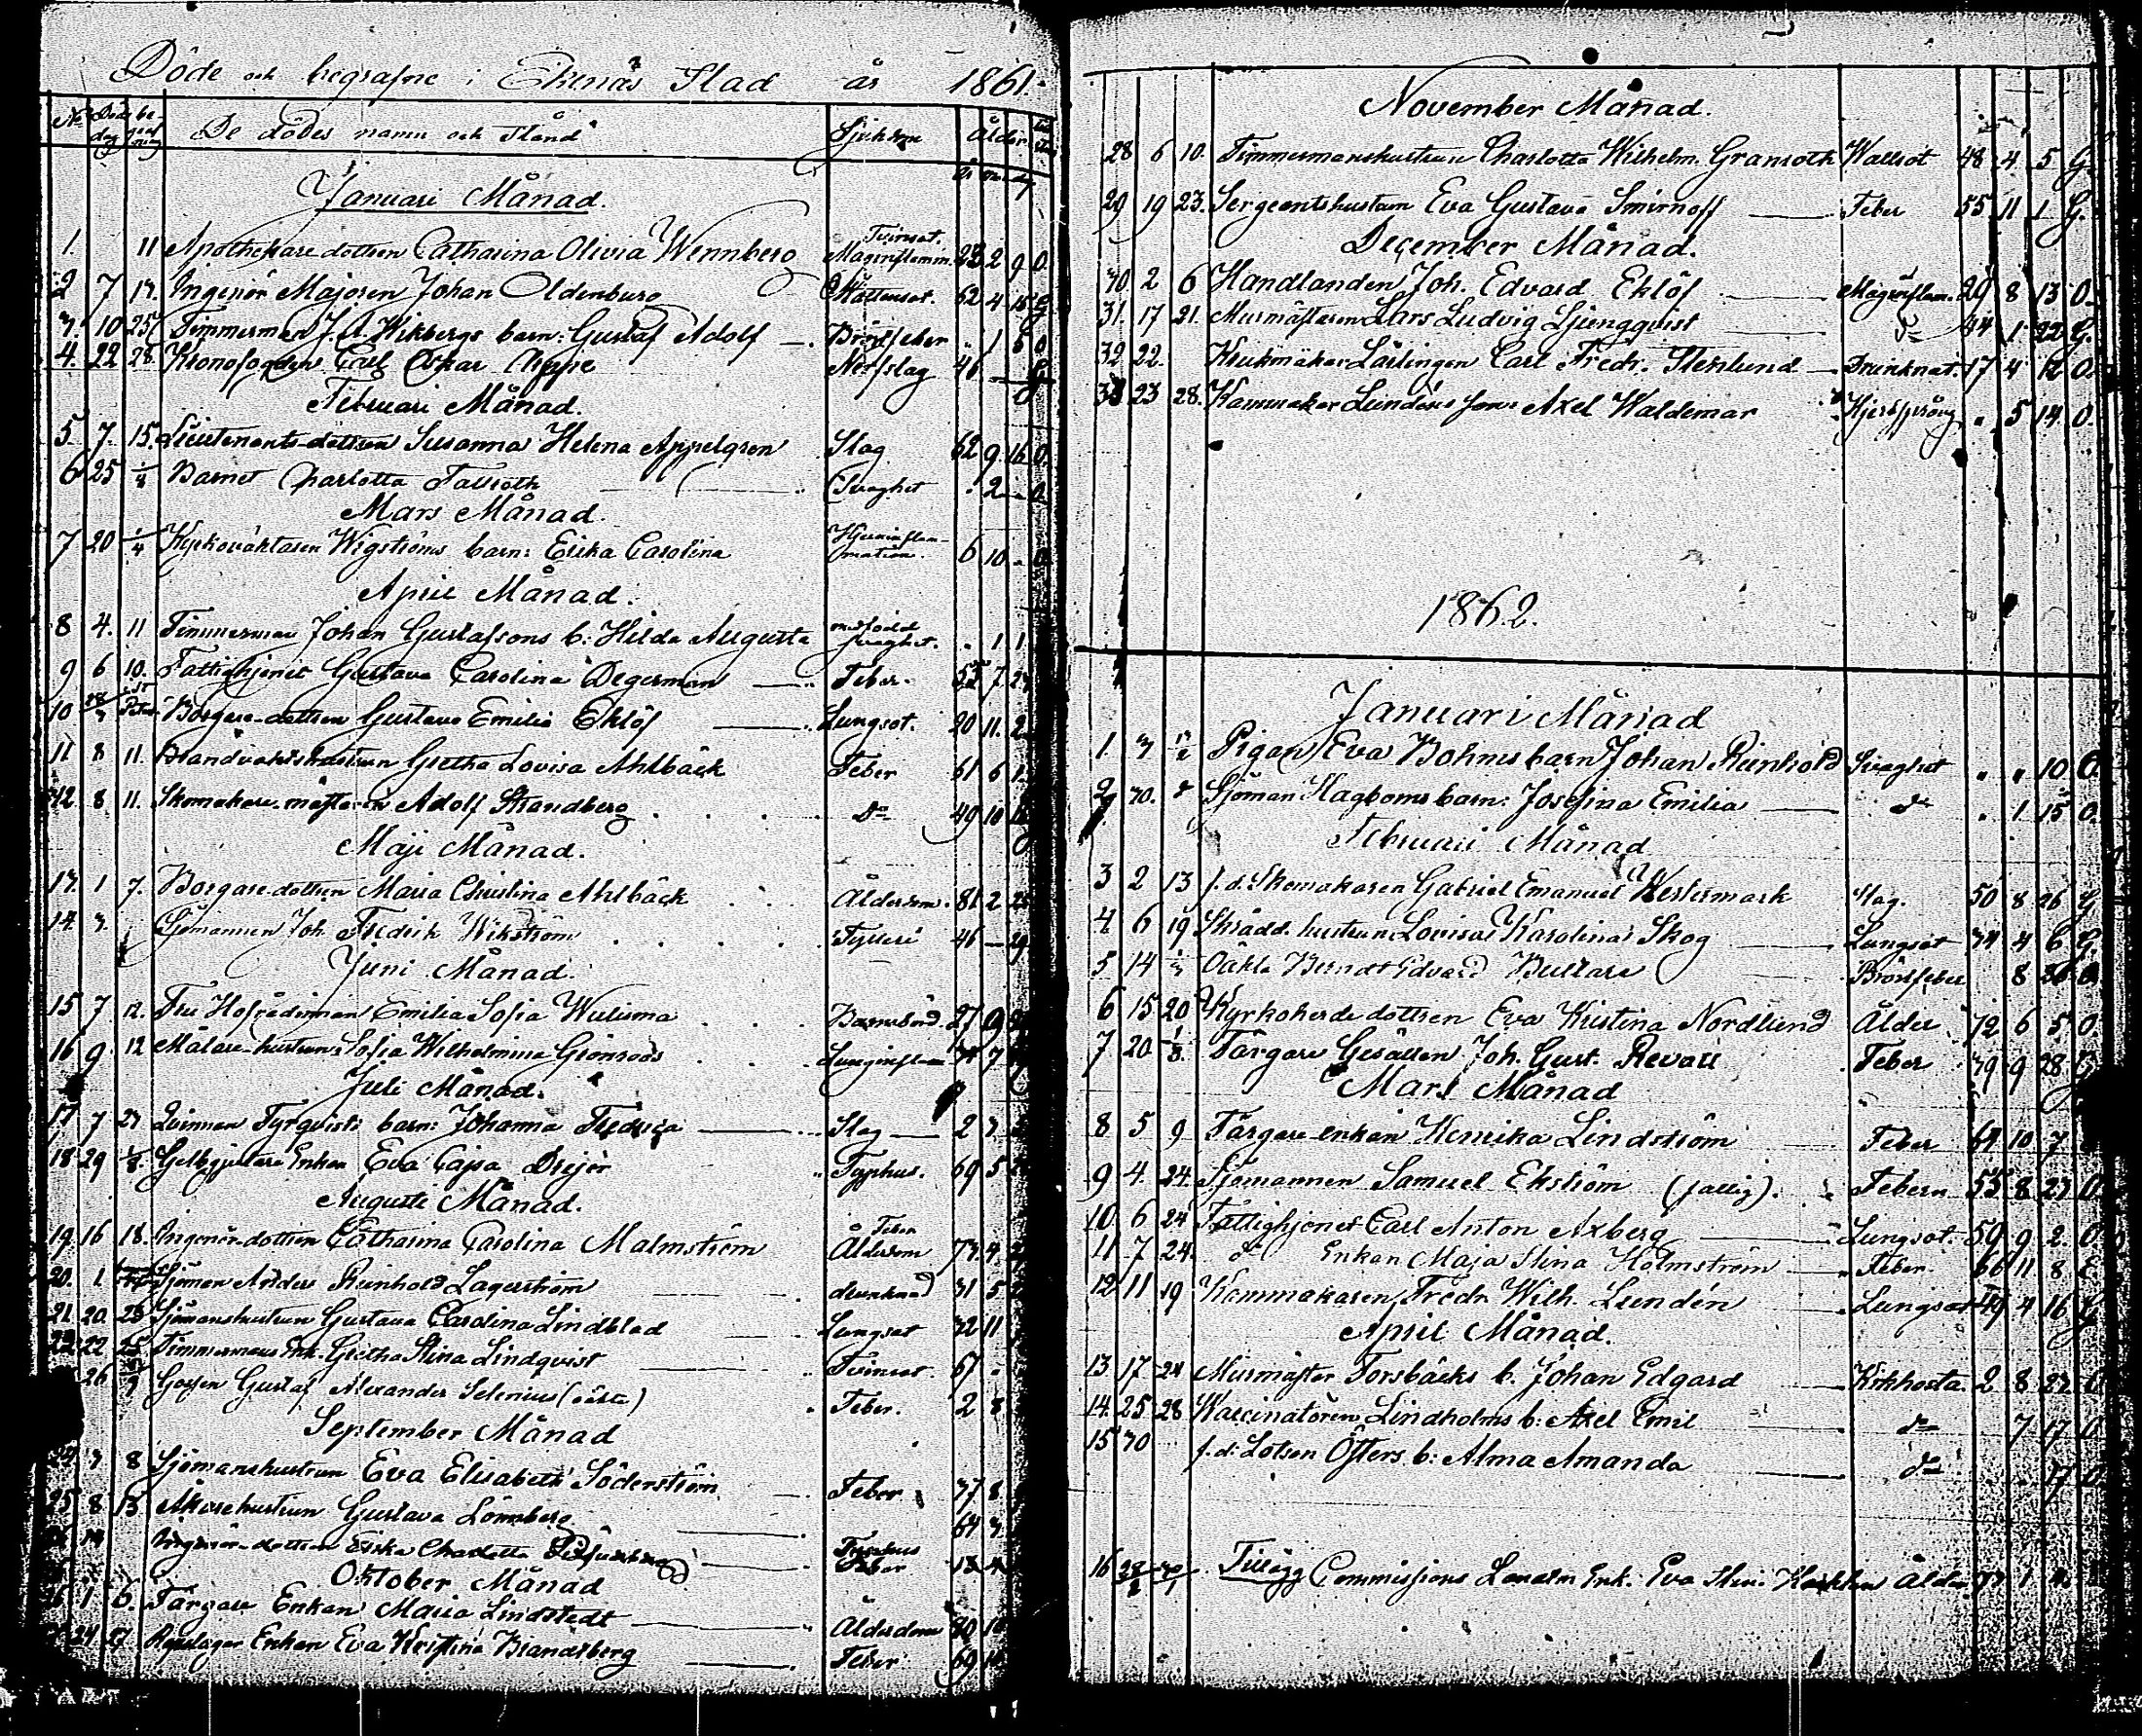 Döde och begrafne i Ekenäs Stad år 1861.
No Död dag be- graf ning De dödes namn och Stånd Sjukdom Ålder
år mån dag
Januari Månad.
1. 11 Apothekare dottren Catharina Olivia Wennberg Tvinsot. Maginflamm. 23 2 9 O.
2 7 17. Ingeniör Majoren Johan Oldenburg Vattensot. 62 4 15
3. 10 25 Timmerman J. A. Wikbergs barn: Gustaf Adolf Bröstfeber " 1 5 O
4. 22 28. Kronofogden Carl Oskar Nerfslag 46 —
Februari Månad.
5. 7. 15. Lieutenants-dottren Susanna Helena Appelgren Slag 62 9. 16 O.
6 25 Barnet Charlotta Svaghet . 2 - O
Mars Månad.
7 20 Kyrkovaktaren Wigströms barn: Erika Carolina Hjerninflam- mation. 6 10 - O
April Månad.
8 4. 11 Timmerman Johan Gustafssons b. Hilda Augusta medfödd svaghet. . 1 1
9 6 10. Fattighjonet Gustava Carolina Degerman Feber. 55 7
10 Borgare-dottren Gustava Emilia Eklöf Lungsot. 20 11. 2
11 8 11. Brandvaktshustrun Gretha Lovisa Ahlbäck Feber 61 6
12. 8 11. Skomakare mästaren Adolf Strandberg Do 49 10
Maji Månad.
13. 1 7. Borgare-dottren Maria Christina Ahlbäck Ålderdom. 81 2
14 3. Sjömannen Joh. Fredrik Wikström Fylleri 46 —
Juni Månad.
15 7 12. Fru Emilia Sofia Barnsbörd. 27 9
16 9 12 Målare-hustrun Sofia Wilhelmina Grönroos Lunginflam 7
Juli Månad.
17 7 Qvinnan barn: Johanna Fredrica Slag 2 3
18 29 1/8. Gelbgjutare Enkan Eva Cajsa Dreijer Typhus. 69 5
Augusti Månad.
19. 16 18. Ingeniör-dottren Catharina Carolina Malmström Feber Ålderdom 77. 4.
20. 1. Sjöman Anders Reinhold Lagerström drunknad 31 5
21. 20. 23 Sjömanshustrun Gustava Carolina Lindblad Lungsot 32 11
22 22 25 Timmermans Enk. Gretha Stina Lindqvist Tvinsot. 67 -
26 Gossen Gustaf Alexander Selenius (oäkta) Feber. 2 8
September Månad
24 3 8 Sjömanshustrun Eva Elisabeth Söderström Feber 37 8
25 8 13 hustrun Gustava Lönnberg 64 3
Ingeniör-dottren Erika Charlotta Typhus Feber 13 4
Oktober Månad
1 6. Färgare Enkan Maria Lindstedt Ålderdom 80 10
24 27 Repslagar Enkan Eva Kristina Brandsberg Feber 69
November Månad.
28 6 10. Timmermanshustrun Charlotta Wilhelm. Granroth Wattsot 48 4 5 G.
29 19 23. Sergeantshustrun Eva Gustava Smirnoff Feber 55 11 1 G.
December Månad.
30 2 6 Handlanden Joh. Edvard Eklöf Maginflam. 29 8 13 O.
31. 17 21. Murmästaren Lars Ludvig Ljungqvist Do 44 1. 22 G.
32 22. Krukmakar Lärlingen Carl Fredr. Stenlund Drunknat. 17 4 12 O.
33 23 28. Kammakar Lundéns son Axel Waldemar " 5 14 O.
1862.
Januari Månad
1. 3 Pigan Eva Bohms barn Johan Reinhold Svaghet " " 10 O.
2 30. do Sjöman Hagboms barn: Josefina Emilia do " 1 15 O.
Februari Månad
3 2 13 f. d. Skomakaren Gabriel Emanuel Westermark Slag. 50 8 26 G
4 6 19 Skrädd. hustrun Lovisa Karolina Skog Lungsot 34 4 6 G.
5 14 Oäkta Berndt Edvard Bröstfeber 8
6 15 20 Kyrkoherde dottren Eva Kristina Nordlund Ålder 72 6 5 O.
7 20 Färgare Gesällen Joh. Gust. Revall Feber 39 9 28
Mars Månad
8 5 9 Färgare enkan Henrika Lindström Feber 64 10 7
9 4. 24. Sjömannen Samuel Ekström (fattig). Febern 55 8 23 O
10. 6 24 Fattighjonet Carl Anton Axberg Lungsot. 59 9 2. O
11 7 24. do Enkan Maja Stina Holmström Feber. 66 11 8
12 11 19 Kammakaren Fredr. Wilh. Lundén Lungsot 49 4 16
April Månad.
13. 17 24 Murmäster Forsbäcks b. Johan Edgard Kikhosta. 2 8 23 O
14. 25 28 Vaccinatören Lindholms b: Axel Emil do 7 17 O
15 30 f. d. Lotsen Östers b: Alma Amanda do 17 O
16 Tillägg Commissions Enk. Eva Ålder